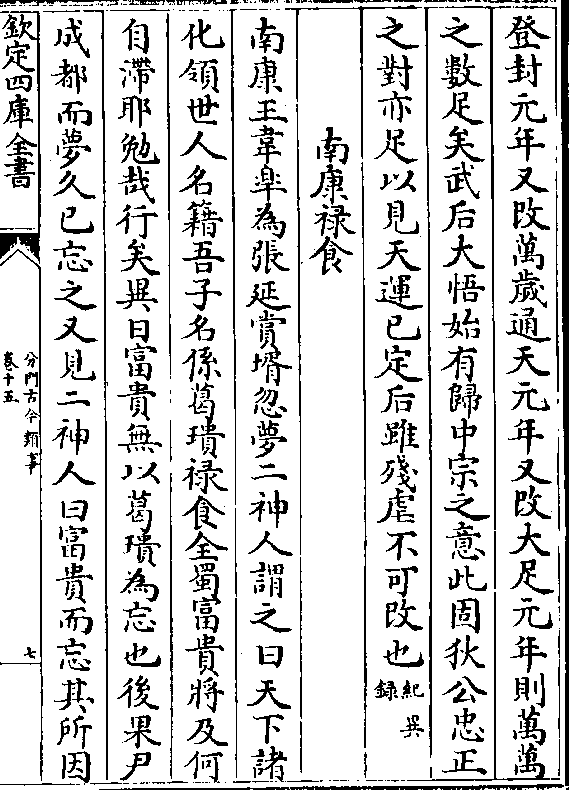 登封元年又改萬歲通天元年又改大足元年則萬萬
之數足矣武后大悟始有歸中宗之意此固狄公忠正
之對亦足以見天運已定后雖殘虐不可改也紀異錄
南康祿食
南康王韋臯為張延賞壻忽夢二神人謂之曰天下諸
化領世人名籍吾子名係葛璝祿食全蜀富貴將及何
自滯耶勉哉行矣異日富貴無以葛璝為忘也後果尹
成都而夢久已忘之又見二神人曰富貴而忘其所因
欽定四庫全書
分門古今類事
卷十五
七